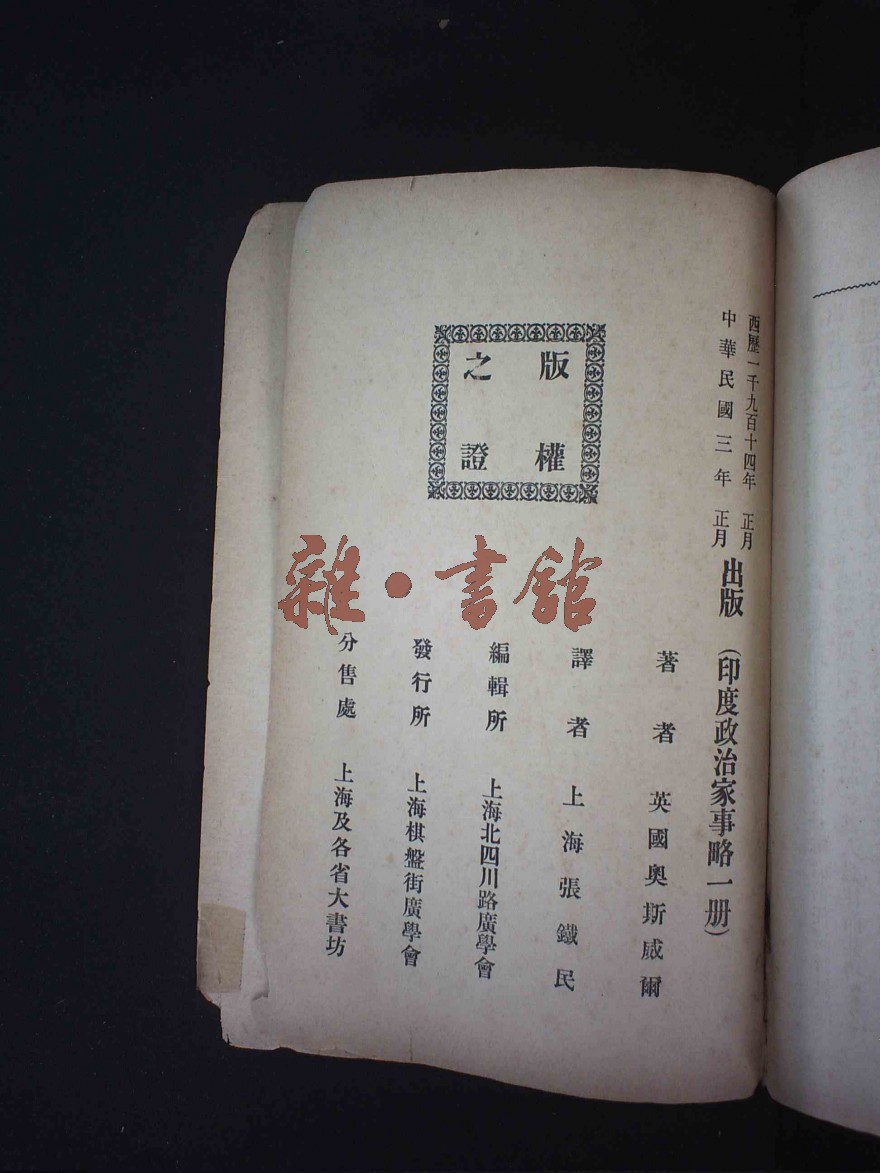 西歷一千九百十四年　正月
中華民國三年　正月
出版　(印度政治家事略一册)
版權
之證
著者　英國奧斯威爾
譯者　上海張鐵民
編輯所　上海北四川路廣學會
發行所　上海棋盤街廣學會
分售處　上海及各省大書坊
雜·書館